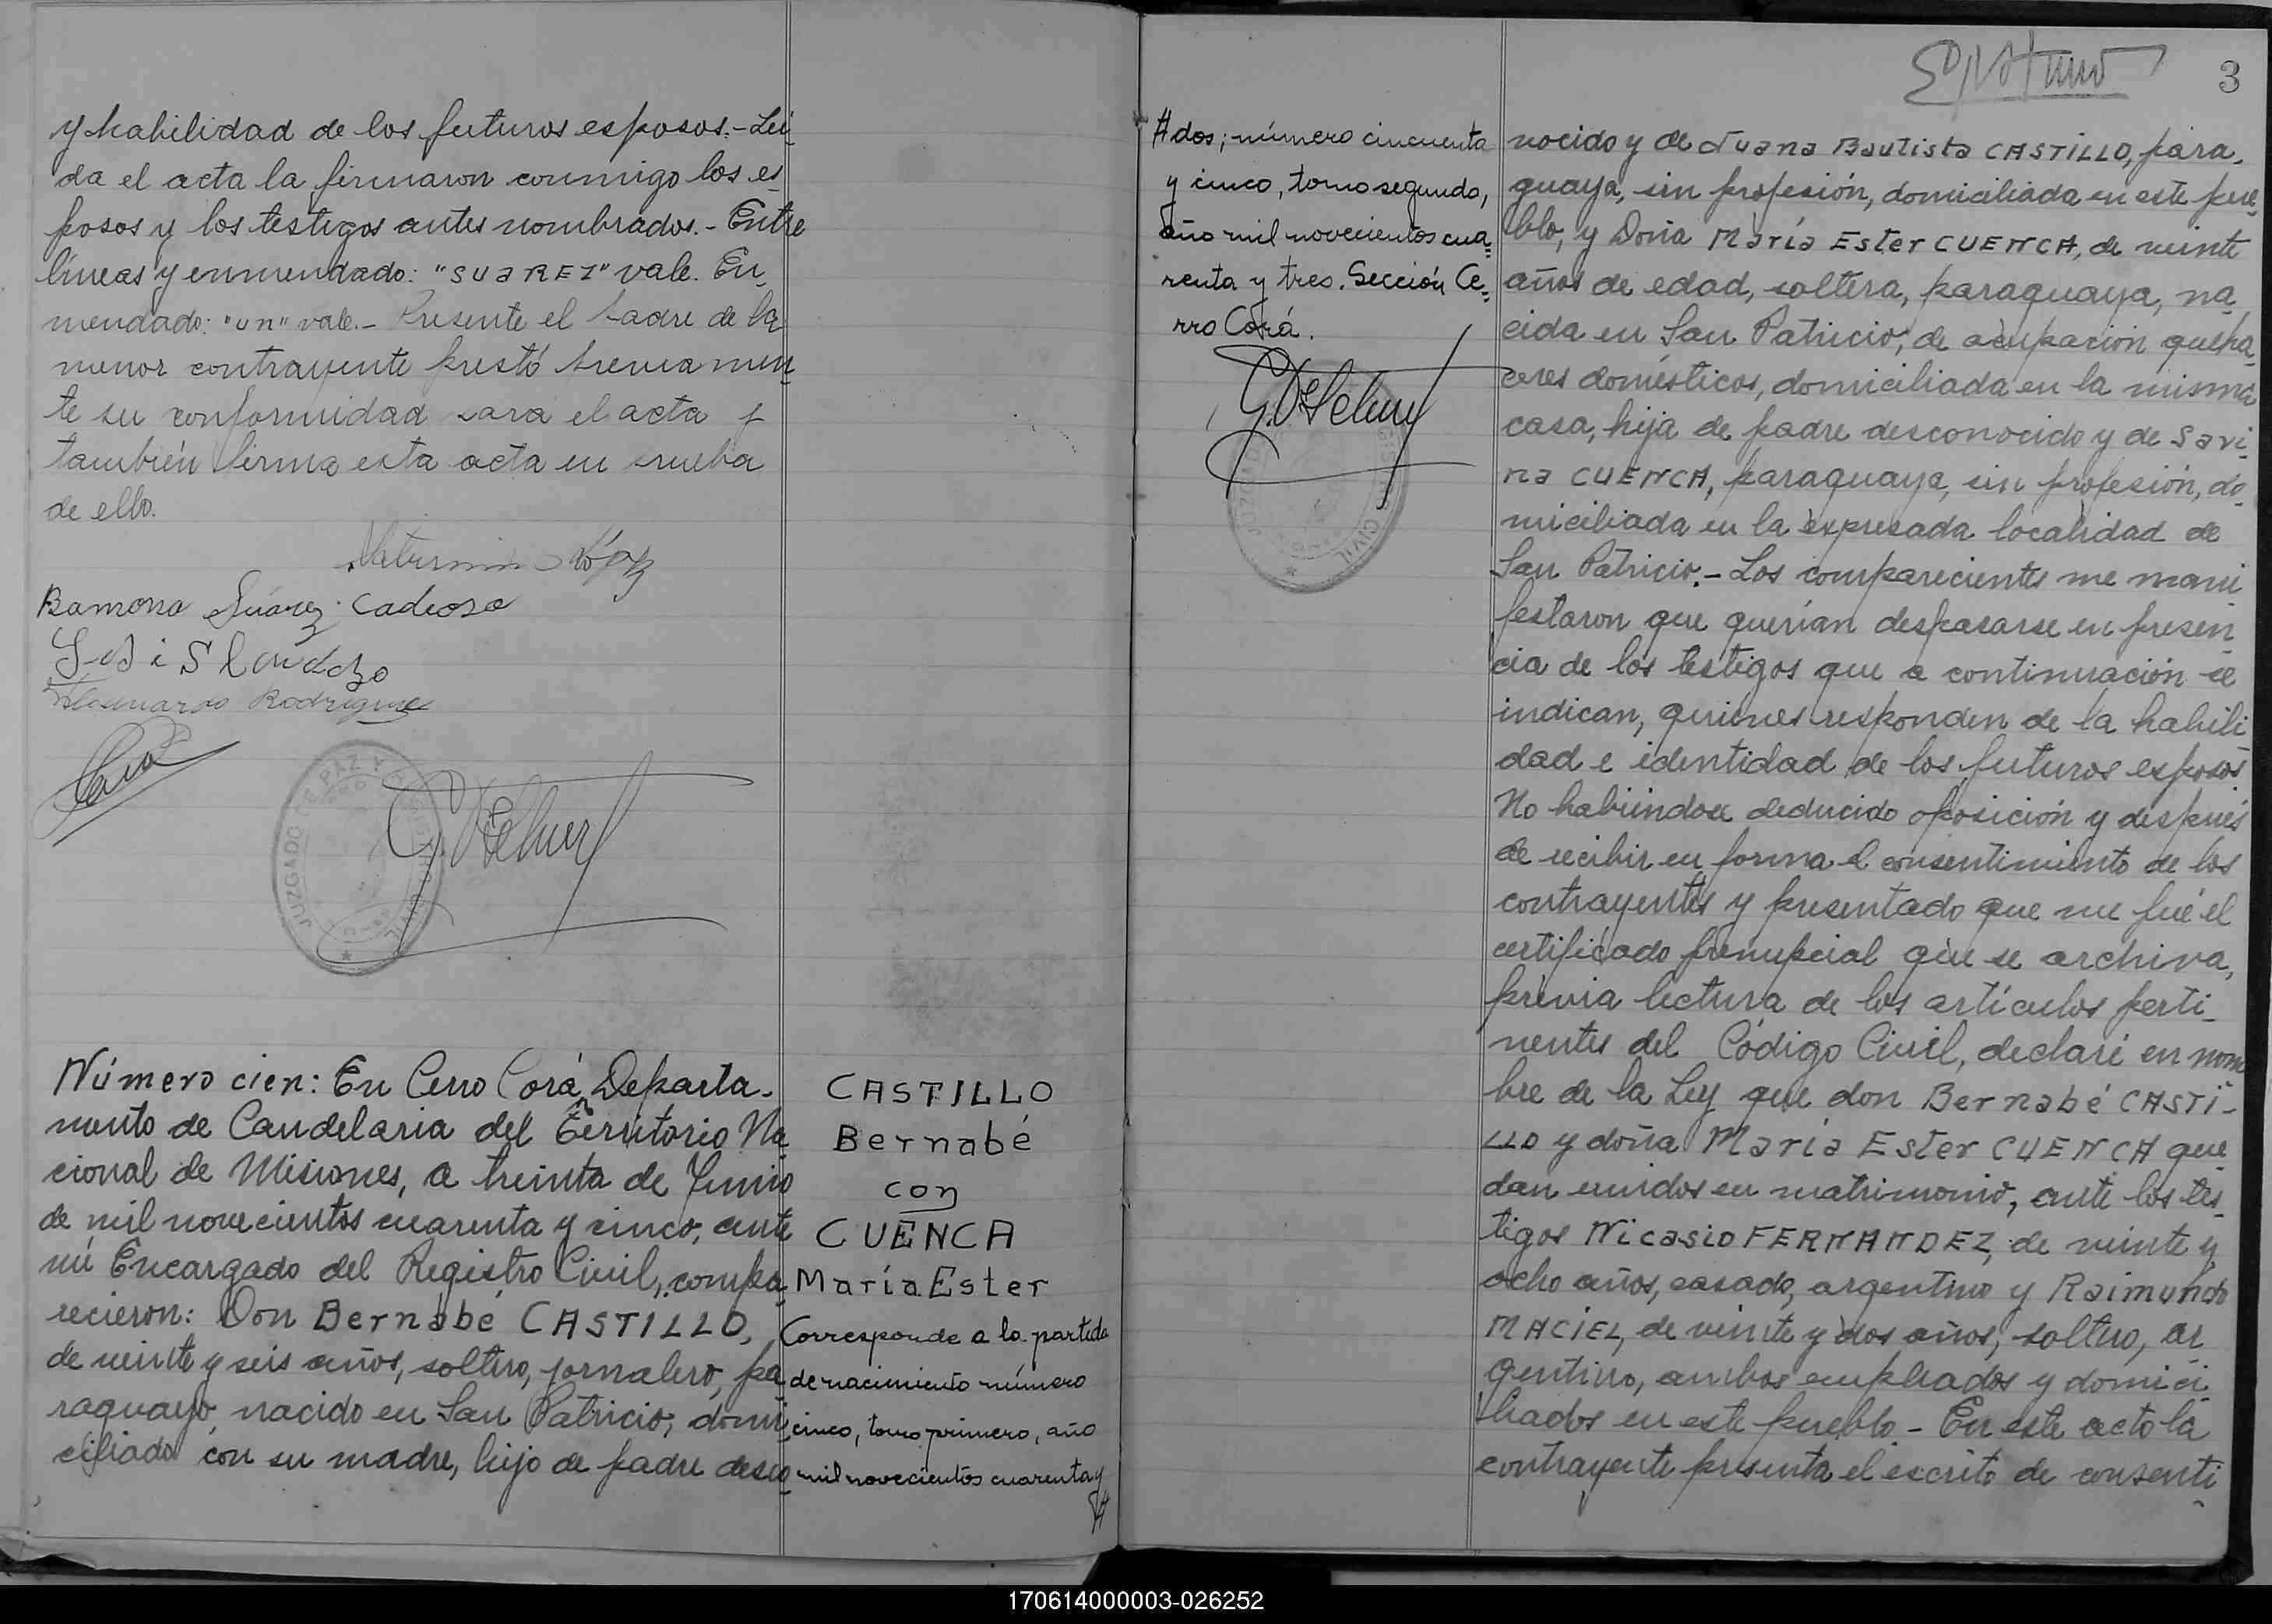 y habilidad de los futuros esposos.- Leí-
da el acta la firmaron conmigo los es-
posos y los testigos antes nombrados.- Entre
líneas y enmendado: "SUAREZ" vale. En-
mendado: "un" vale.- Presente el padre de la
menor contrayente prestó previamen-
te su conformidad para el acta y
también firma esta acta en prueba
de ello.
López
Ramona Suárez Cadeosa
Rodriguez
JUZGADO DE PAZ Y
CIVIL
Número cien: En Cerro Corá, Departa-
mento de Candelaria del Territorio Na-
cional de Misiones, a treinta de Junio
de mil novecientos cuarenta y cinco, ante
mí Encargado del Registro Civil, compa-
recieron: Don Bernabé CASTILLO,
de veinte y seis años, soltero, jornalero, pa-
raguayo, nacido en San Patricio, domi-
ciliado con su madre, hijo de padre desco-
CASTILLO
Bernabé
con
CUENCA
María Ester
Corresponde a la partida
de nacimiento número
cinco, tomo primero, año
mil novecientos cuarenta y
#
3
# dos; número cincuenta
y cinco, tomo segundo,
año mil novecientos cua-
renta y tres. Sección Ce-
rro Corá.
CIVIL
nocido y de Juana Bautista CASTILLO, para-
guaya, sin profesión, domiciliada en este pue-
blo; y Doña María Ester CUENCA, de veinte
años de edad, soltera, paraguaya, na-
cida en San Patricio, de ocupación queha-
ceres domésticos, domiciliada en la misma
casa, hija de padre desconocido y de Savi-
na CUENCA, paraguaya, sin profesión, do-
miciliada en la expresada localidad de
San Patricio.- Los comparecientes me mani-
festaron que querían desposarse en presen-
cia de los testigos que a continuación se
indican, quienes responden de la habili-
dad e identidad de los futuros esposos
No habiéndose deducido oposición y después
de recibir en forma el consentimiento de los
contrayentes y presentado que me fué el
certificado prenupcial que se archiva,
previa lectura de los artículos perti-
nentes del Código Civil, declaré en nom-
bre de la Ley que don Bernabé CASTI-
LLO y doña María Ester CUENCA que-
dan unidos en matrimonio, ante los tes-
tigos Nicasio FERNANDEZ, de veinte y
ocho años, casado, argentino y Raimundo
MACIEL, de veinte y dos años, soltero, ar-
gentino, ambos empleados y domici-
liados en este pueblo - En este acto la
contrayente presenta el escrito de consenti-
170614000003-026252